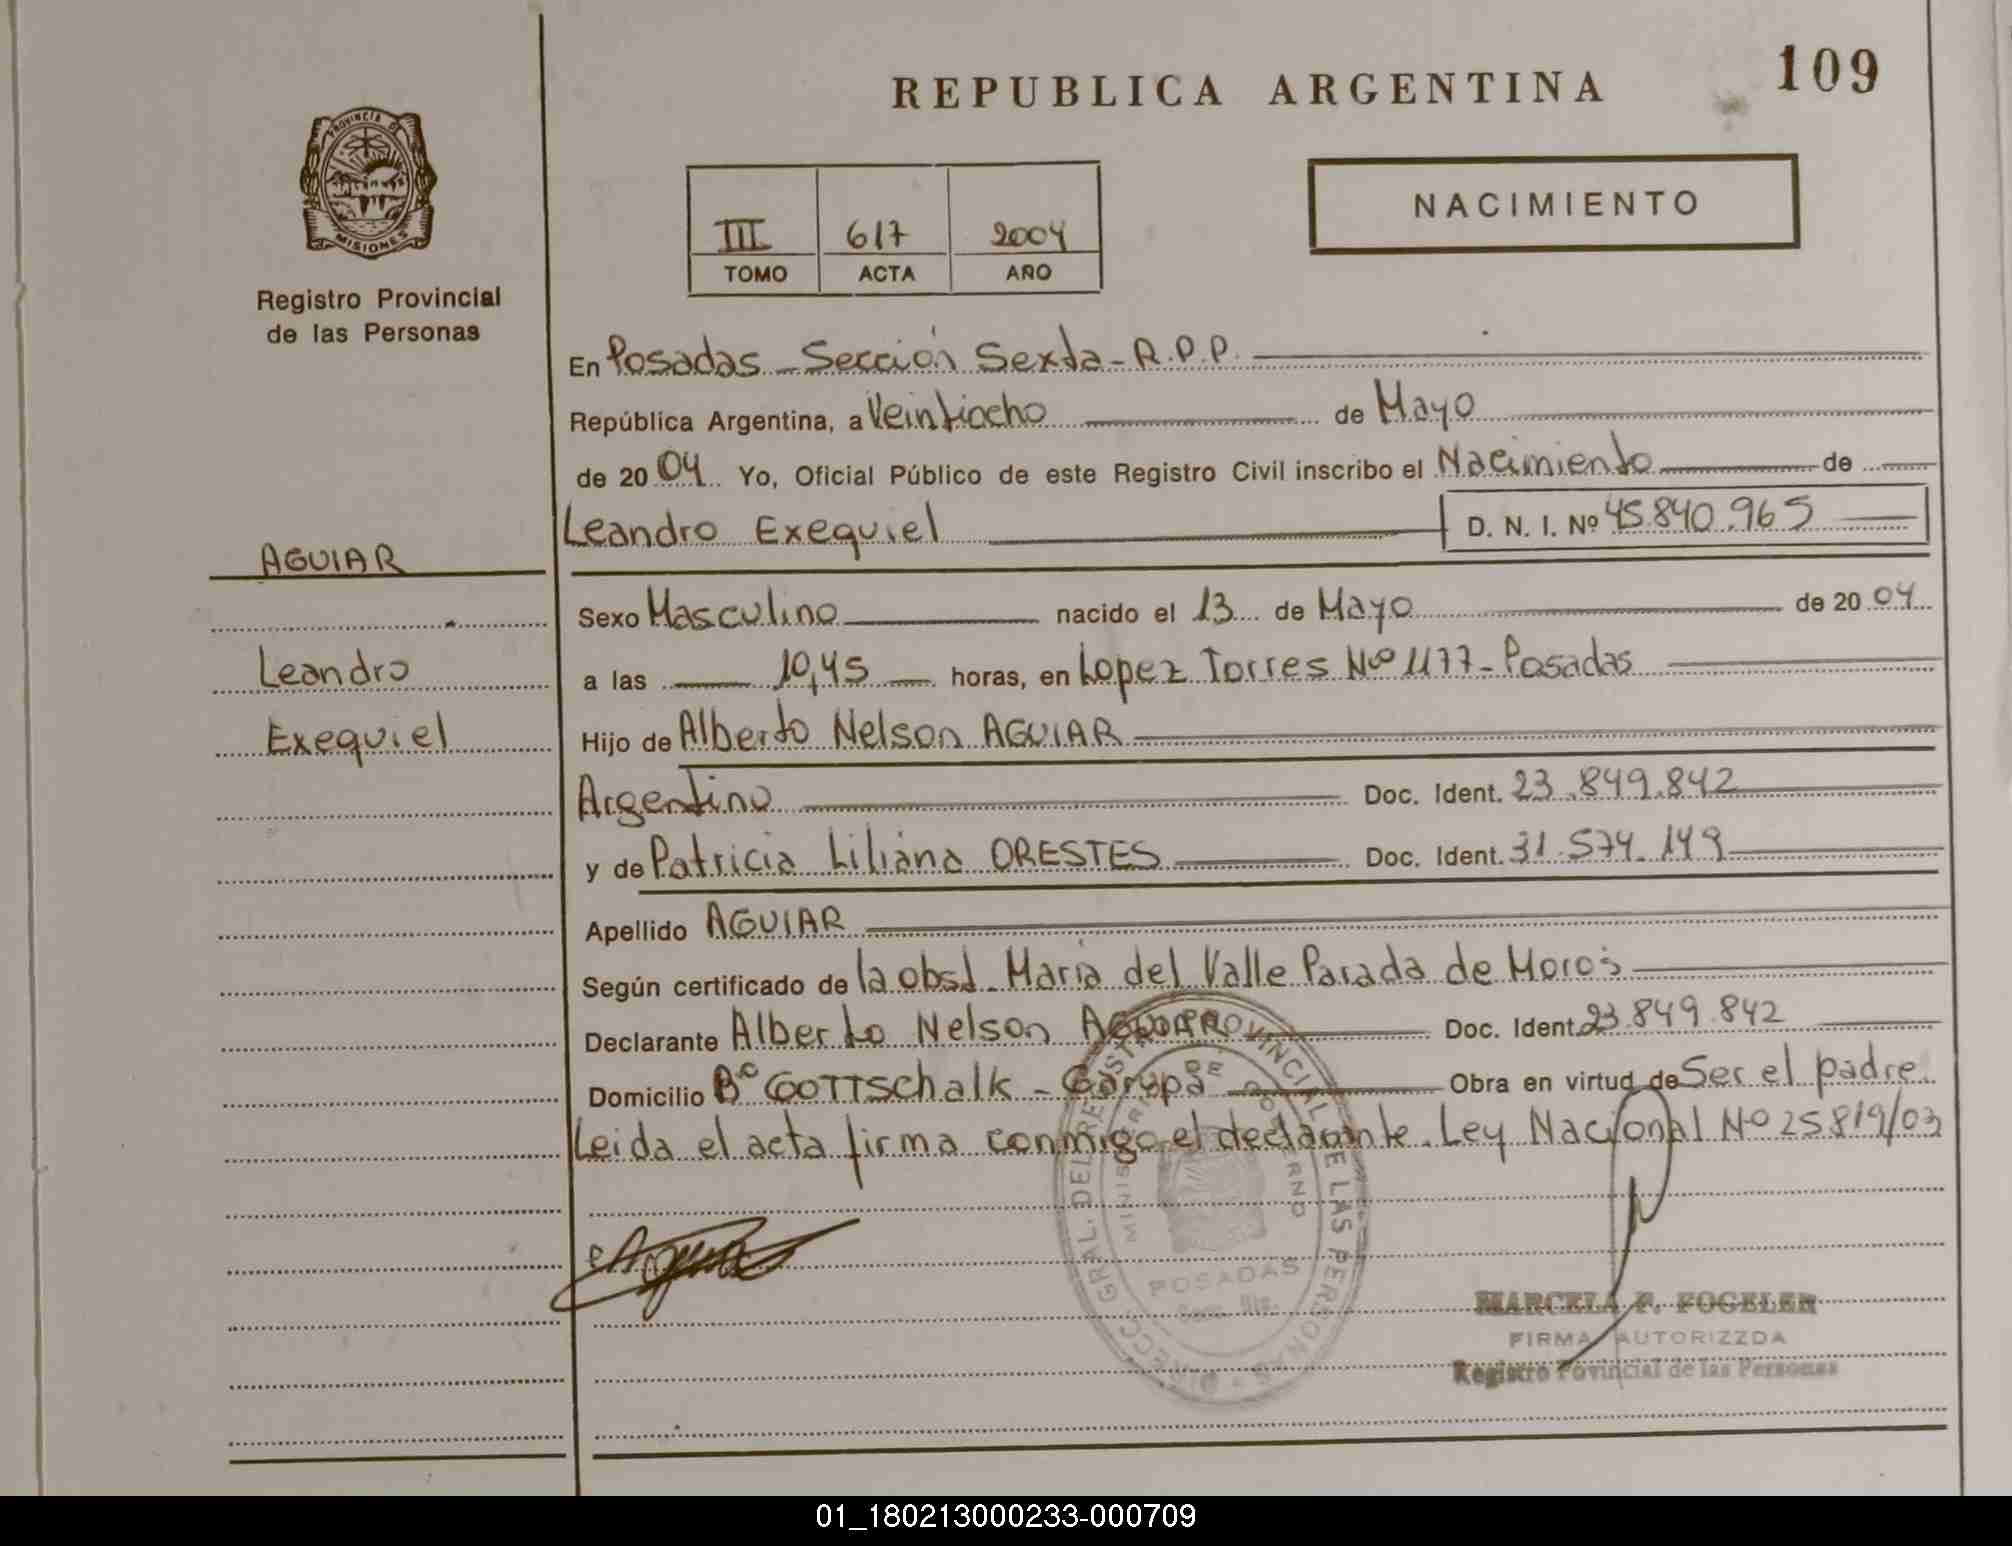 REPUBLICA ARGENTINA
109
PROVINCIA DE MISIONES
Registro Provincial
de las Personas
NACIMIENTO
III 617 2004
TOMO ACTA AÑO
En Posadas - Sección Sexta - R.P.P.
República Argentina, a Veintiocho de Mayo
de 2004 Yo, Oficial Público de este Registro Civil inscribo el Nacimiento de
Leandro Exequiel D. N. I. Nº 45.840.965
AGUIAR
Leandro
Exequiel
Sexo Masculino nacido el 13 de Mayo de 2004
a las 10,45 horas, en Lopez Torres Nº 1177 - Posadas
Hijo de Alberto Nelson AGUIAR
Argentino Doc. Ident. 23.849.842
y de Patricia Liliana ORESTES Doc. Ident. 31.574.149
Apellido AGUIAR
Según certificado de la obst. María del Valle Parada de Moros
Declarante Alberto Nelson AGUIAR Doc. Ident. 23.849.842
Domicilio Bº GOTTSchalk - Garupá Obra en virtud de Ser el padre
Leida el acta firma conmigo el declarante. Ley Nacional Nº 25819/03
DIRECC. GRAL. DEL REGISTRO PROVINCIAL DE LAS PERSONAS
MINISTERIO DE GOBIERNO
POSADAS
MARCELA F. FOGELER
FIRMA AUTORIZZDA
Registro Provincial de las Personas
01_180213000233-000709